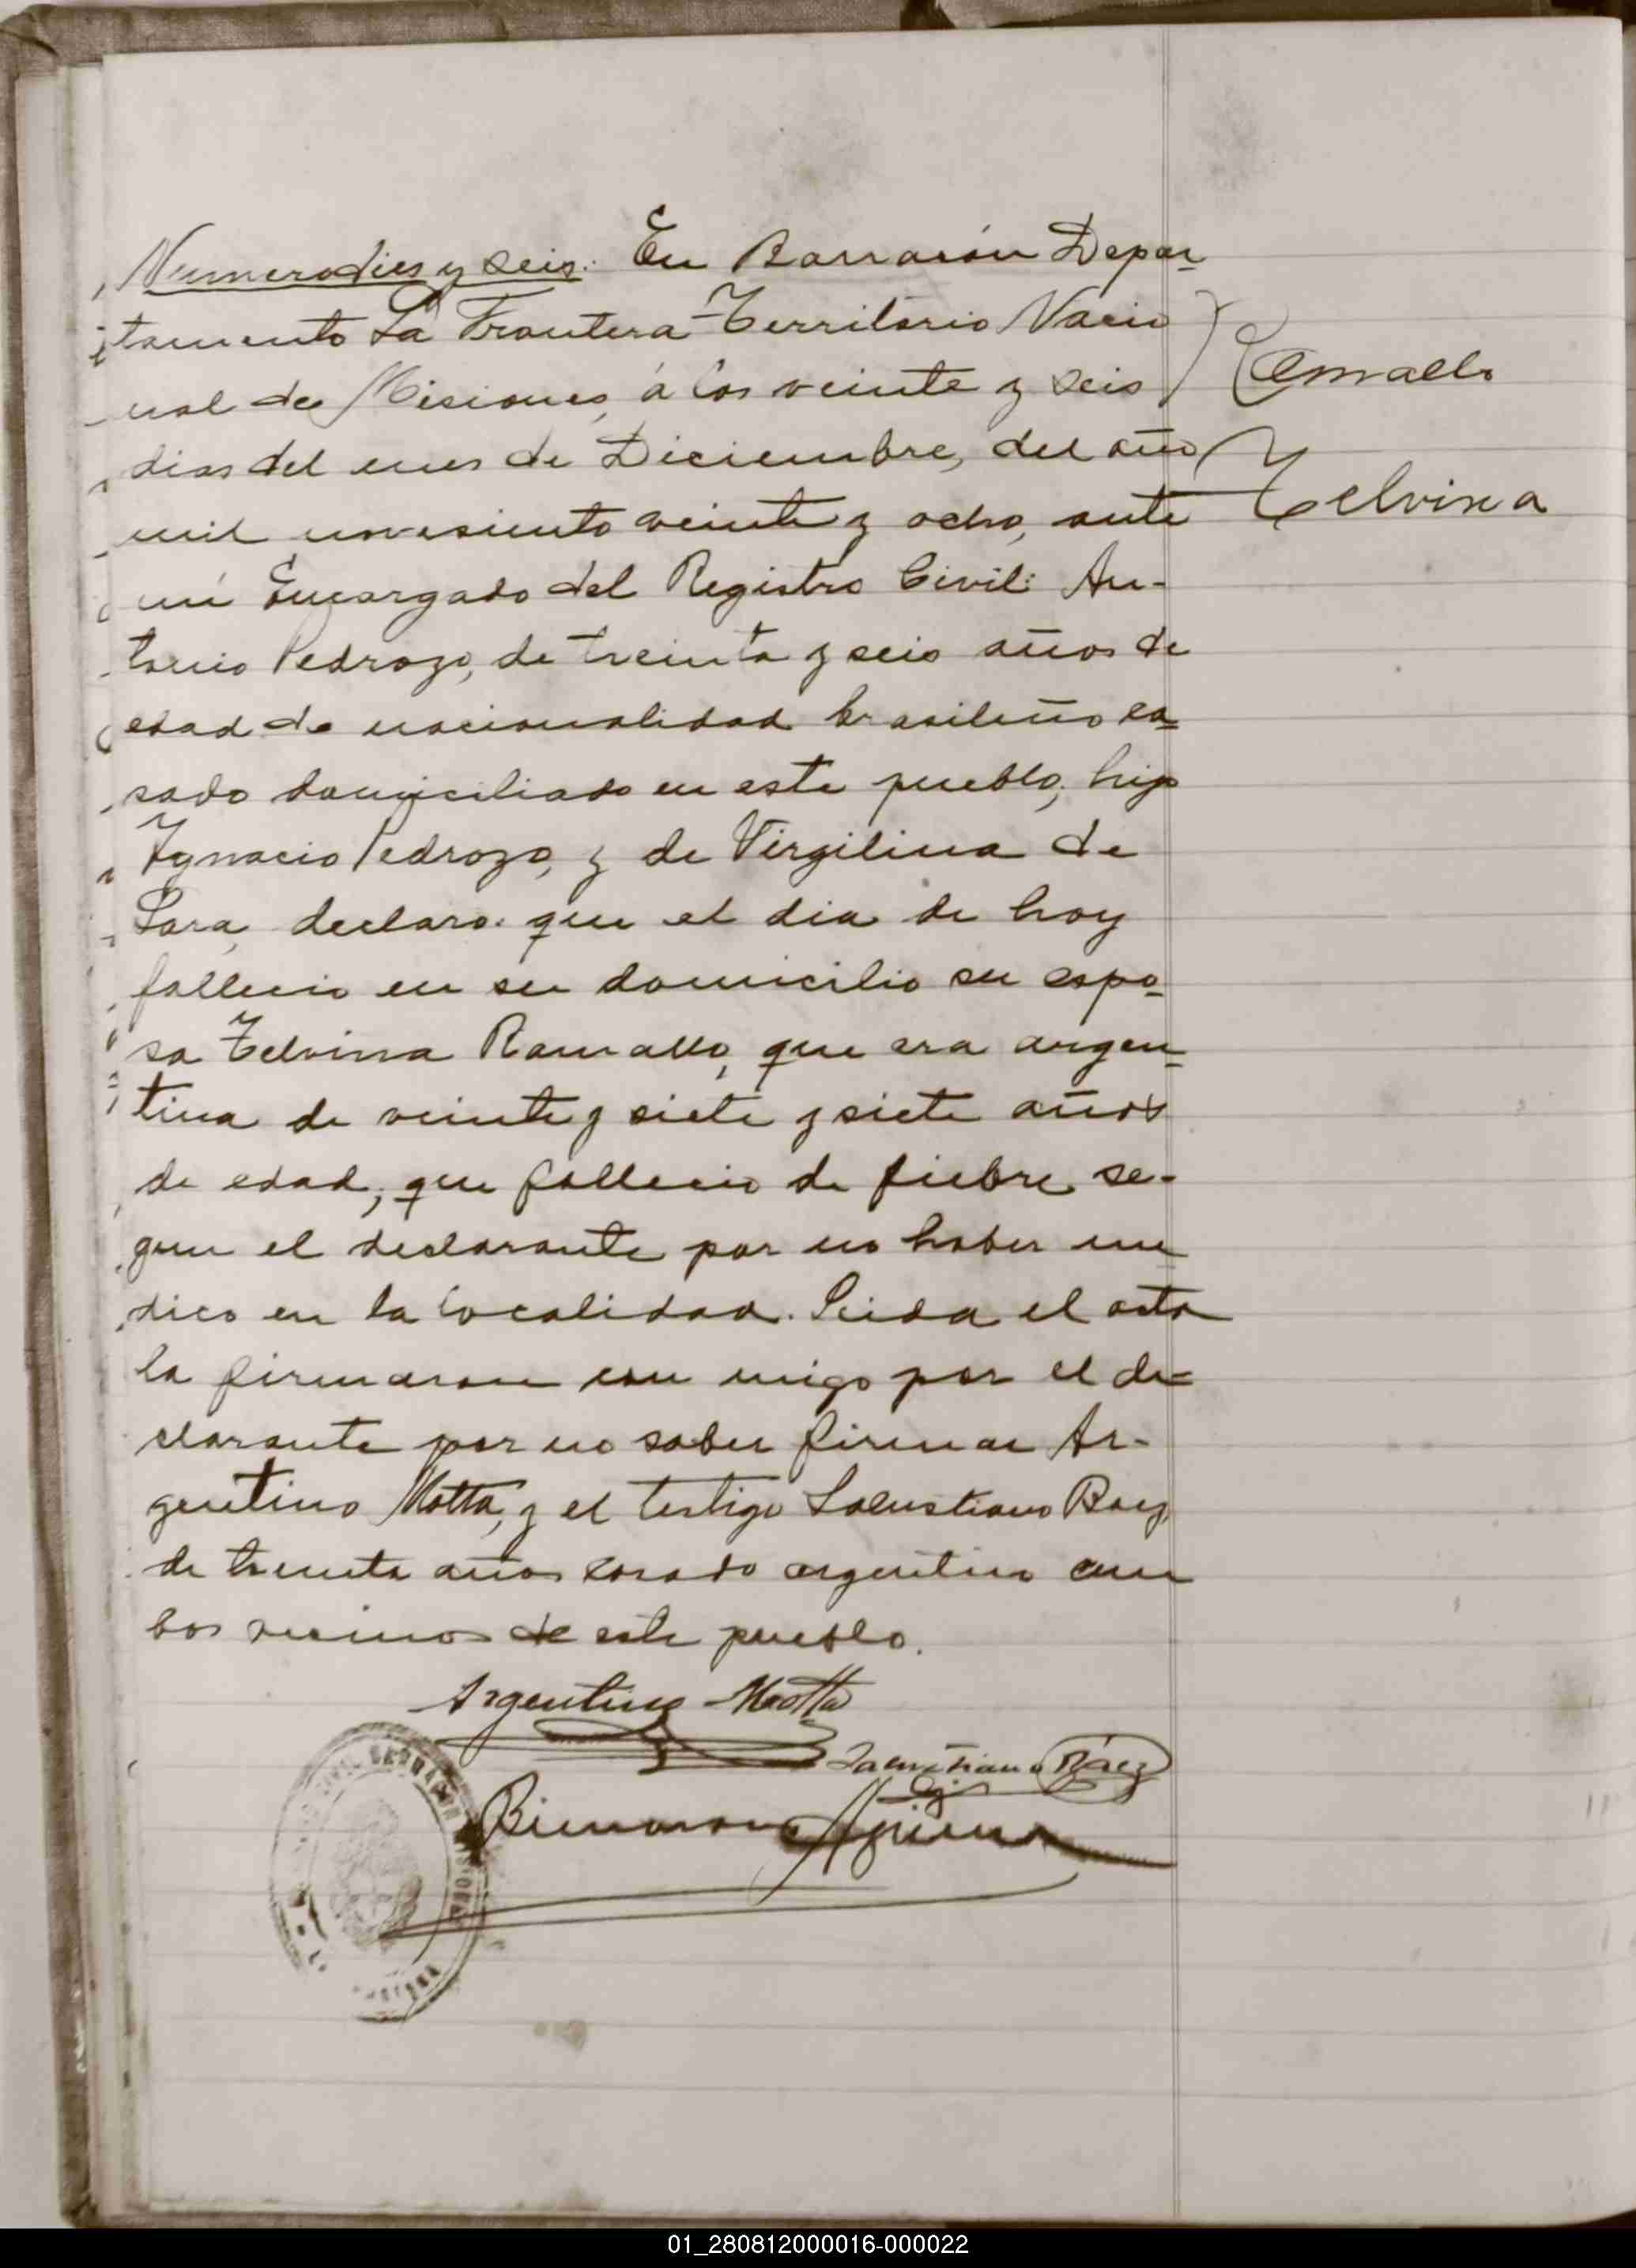 Numero dies y seis: En Barracón Depar-
tamento La Frontera Territorio Nacio
nal de Misiones, á los veinte y seis
dias del mes de Diciembre, del año
mil novesiento veinte y ocho, ante
mi Encargado del Registro Civil: An-
tonio Pedrozo, de treinta y seis años de
edad de nacionalidad brasileño ca-
sado domiciliado en este pueblo, hijo
Ygnacio Pedrozo, y de Virgilina de
Lara, declaro: que el dia de hoy
fallecio en su domicilio su espo-
sa Telvina Ramallo, que era argen-
tina de veinte y siete y siete años
de edad, que fallecio de fiebre se-
gun el declarante por no haber me
dico en la localidad. Leida el acta
la firmaron con migo por el de-
clarante por no saber firmar Ar-
gentino Motta, y el testigo Salustiano Baez,
de treinta años casado argentino am
bos vecinos de este pueblo.
Ramallo
Telvina
Argentino Motta
Salustiano Báez
CIVIL